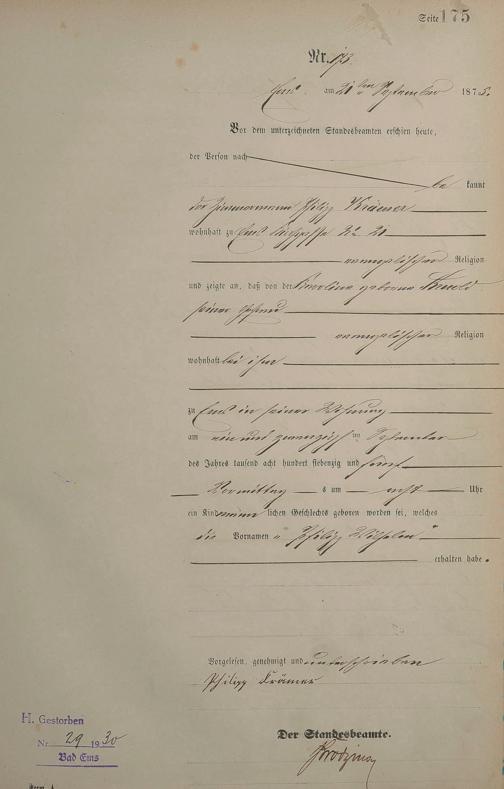 Seite 175
Nr. 173.
Ems am 21ten September 1875.
Vor dem unterzeichneten Standesbeamten erschien heute,
der Person nach
be kannt
der Zimmermann Philipp Krämer
wohnhaft zu Ems No 21
evangelischer Religion
und zeigte an, daß von der Karolina geborne
seiner Ehefrau
evangelischer Religion
wohnhaft bei ihm
zu Ems in seiner Wohnung
am ein und zwanzigsten September
des Jahres tausend acht hundert siebenzig und fünf
Vormittag s um acht Uhr
ein Kind männ lichen Geschlechts geboren worden sei, welches
die Vornamen „Philipp Wilhelm"
erhalten habe.
Vorgelesen, genehmigt und unterschrieben
Philipp Krämer
Der Standesbeamte.
H. Gestorben
Nr. 29 1930
Bad Ems